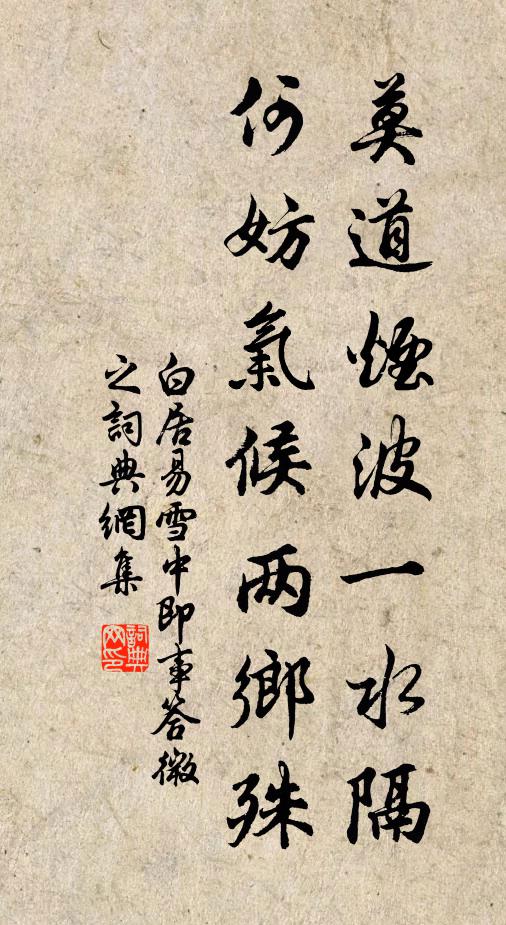 莫道煙波一水隔
何妨氣候两鄉殊
白居易雪中即事答微
之詞典網集
詞典
网印